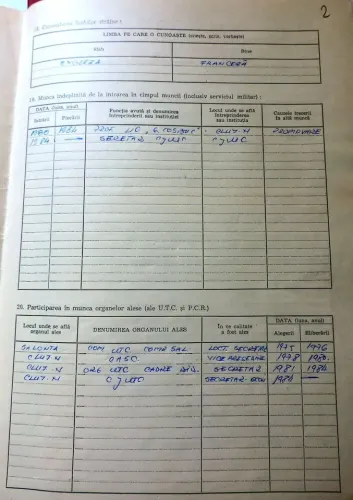 2
18. Cunoașterea limbilor străine :
LIMBA PE CARE O CUNOAȘTE (citește, scrie, vorbește)
Slab Bine
ENGLEZA FRANCEZĂ
19. Munca îndeplinită de la intrarea în cîmpul muncii (inclusiv serviciul militar) :
DATA (luna, anul) Funcția avută și denumirea întreprinderii sau instituției Locul unde se află întreprinderea sau instituția Cauzele trecerii la altă muncă
Intrării Plecării
1980 1984 PROF. LIC. CLUJ-N PROMOVARE
1984 — SECRETAR
20. Participarea în munca organelor alese (ale U.T.C. și P.C.R.)
Locul unde se află organul ales DENUMIREA ORGANULUI ALES În ce calitate a fost ales DATA (luna, anul)
Alegerii Eliberării
SALONTA COM UTC LOCT. SECRETAR 1975 1976
CLUJ-N OASC 1978 1980
CLUJ-N ORG UTC CADRE DID. SECRETAR 1981 1984
CLUJ-N CJUTC SECRETAR 1984 —